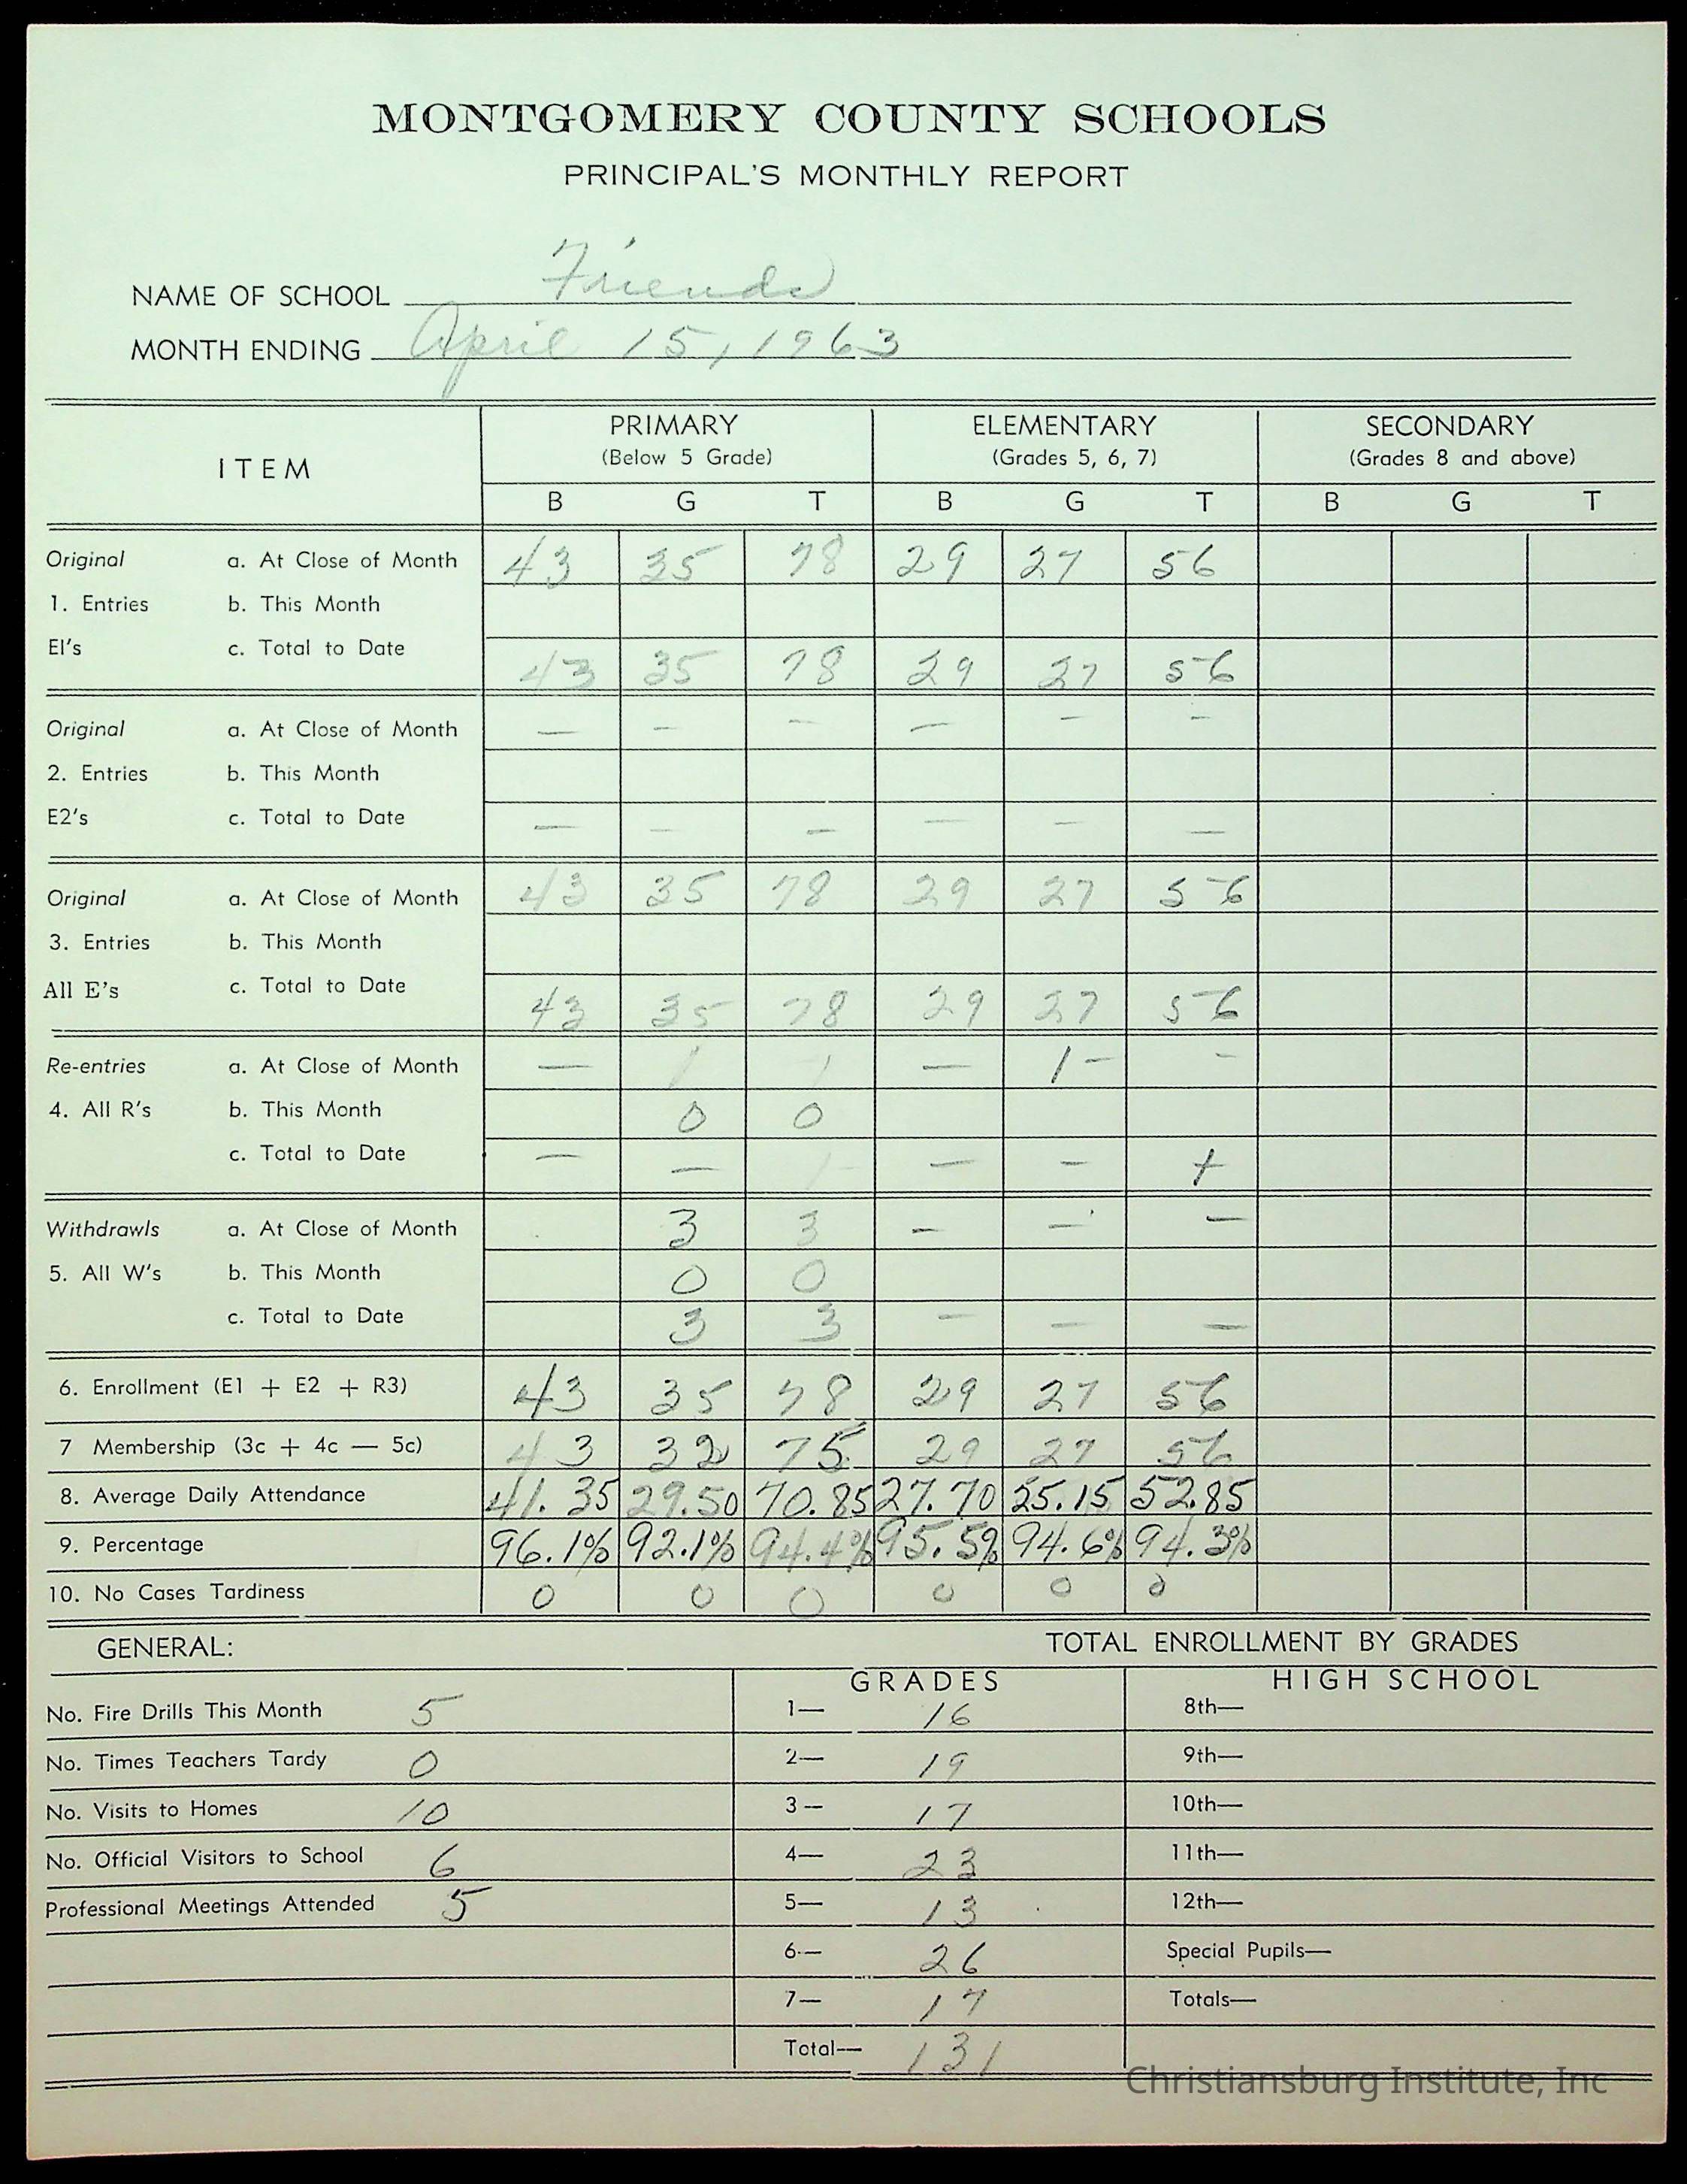 MONTGOMERY COUNTY SCHOOLS
PRINCIPAL'S MONTHLY REPORT
NAME OF SCHOOL Friends
MONTH ENDING April 15, 1963
ITEM
PRIMARY ELEMENTARY SECONDARY
(Below 5 Grade) (Grades 5, 6, 7) (Grades 8 and above)
B G T B G T B G T
Original a. At Close of Month 43 35 78 29 27 56
1. Entries b. This Month
El's c. Total to Date 43 35 78 29 27 56
Original a. At Close of Month — — — — — —
2. Entries b. This Month
E2's c. Total to Date — — — — — —
Original a. At Close of Month 43 35 78 29 27 56
3. Entries b. This Month
All E's c. Total to Date 43 35 78 29 27 56
Re-entries a. At Close of Month — 1 1 — 1- -
4. All R's b. This Month 0 0
c. Total to Date — — 1- — — +
Withdrawls a. At Close of Month 3 3 — — —
5. All W's b. This Month 0 0
c. Total to Date 3 3 — — —
6. Enrollment (E1 + E2 + R3) 43 35 78 29 27 56
7 Membership (3c + 4c — 5c) 43 32 75 29 27 56
8. Average Daily Attendance 41.35 29.50 70.85 27.70 25.15 52.85
9. Percentage 96.1% 92.1% 94.4% 95.5% 94.6% 94.3%
10. No Cases Tardiness 0 0 0 0 0 0
GENERAL: TOTAL ENROLLMENT BY GRADES
GRADES HIGH SCHOOL
No. Fire Drills This Month 5 1— 16 8th—
No. Times Teachers Tardy 0 2— 19 9th—
No. Visits to Homes 10 3— 17 10th—
No. Official Visitors to School 6 4— 23 11th—
Professional Meetings Attended 5 5— 13 12th—
6— 26 Special Pupils—
7— 17 Totals—
Total— 131
Christiansburg Institute, Inc